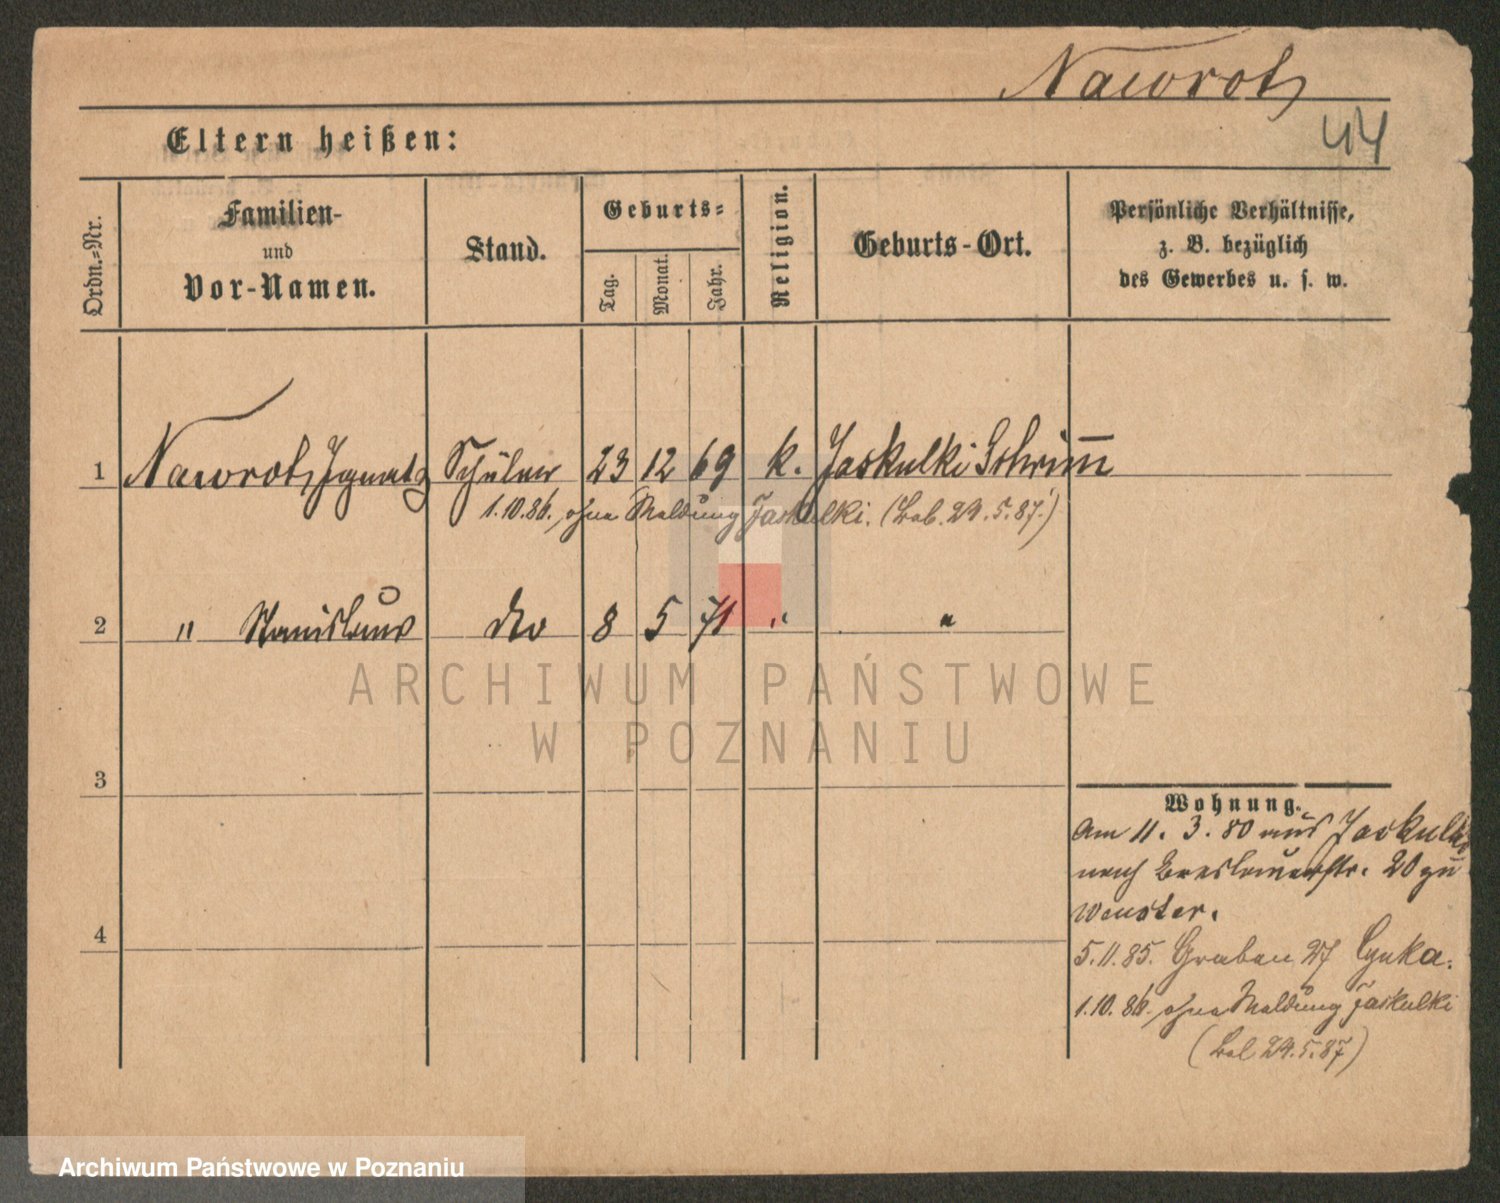 Nawrotz
44
Eltern heißen:
Ordn.-Nr.
Familien-
und
Vor-Namen.
Stand.
Geburts-
Tag.
Monat.
Jahr.
Religion.
Geburts-Ort.
Persönliche Verhältnisse,
z. B. bezüglich
des Gewerbes u. s. w.
1 Nawrotz Ignatz Schüler 23 12 69 k. Jaskulki Schrim̅
1.10.86. ohne Meldung Jaskulki. 29.5.87.)
2 " Stanislaus dto 8 5 71 " "
ARCHIWUM PAŃSTWOWE
W POZNANIU
3
4
Wohnung.
Am 11. 3. 80 aus Jaskulki
nach Breslauerstr. 20 zu
5.11.85. Graben 27
1.10.86. ohne Meldung Jaskulki
29.5.87)
Archiwum Państwowe w Poznaniu